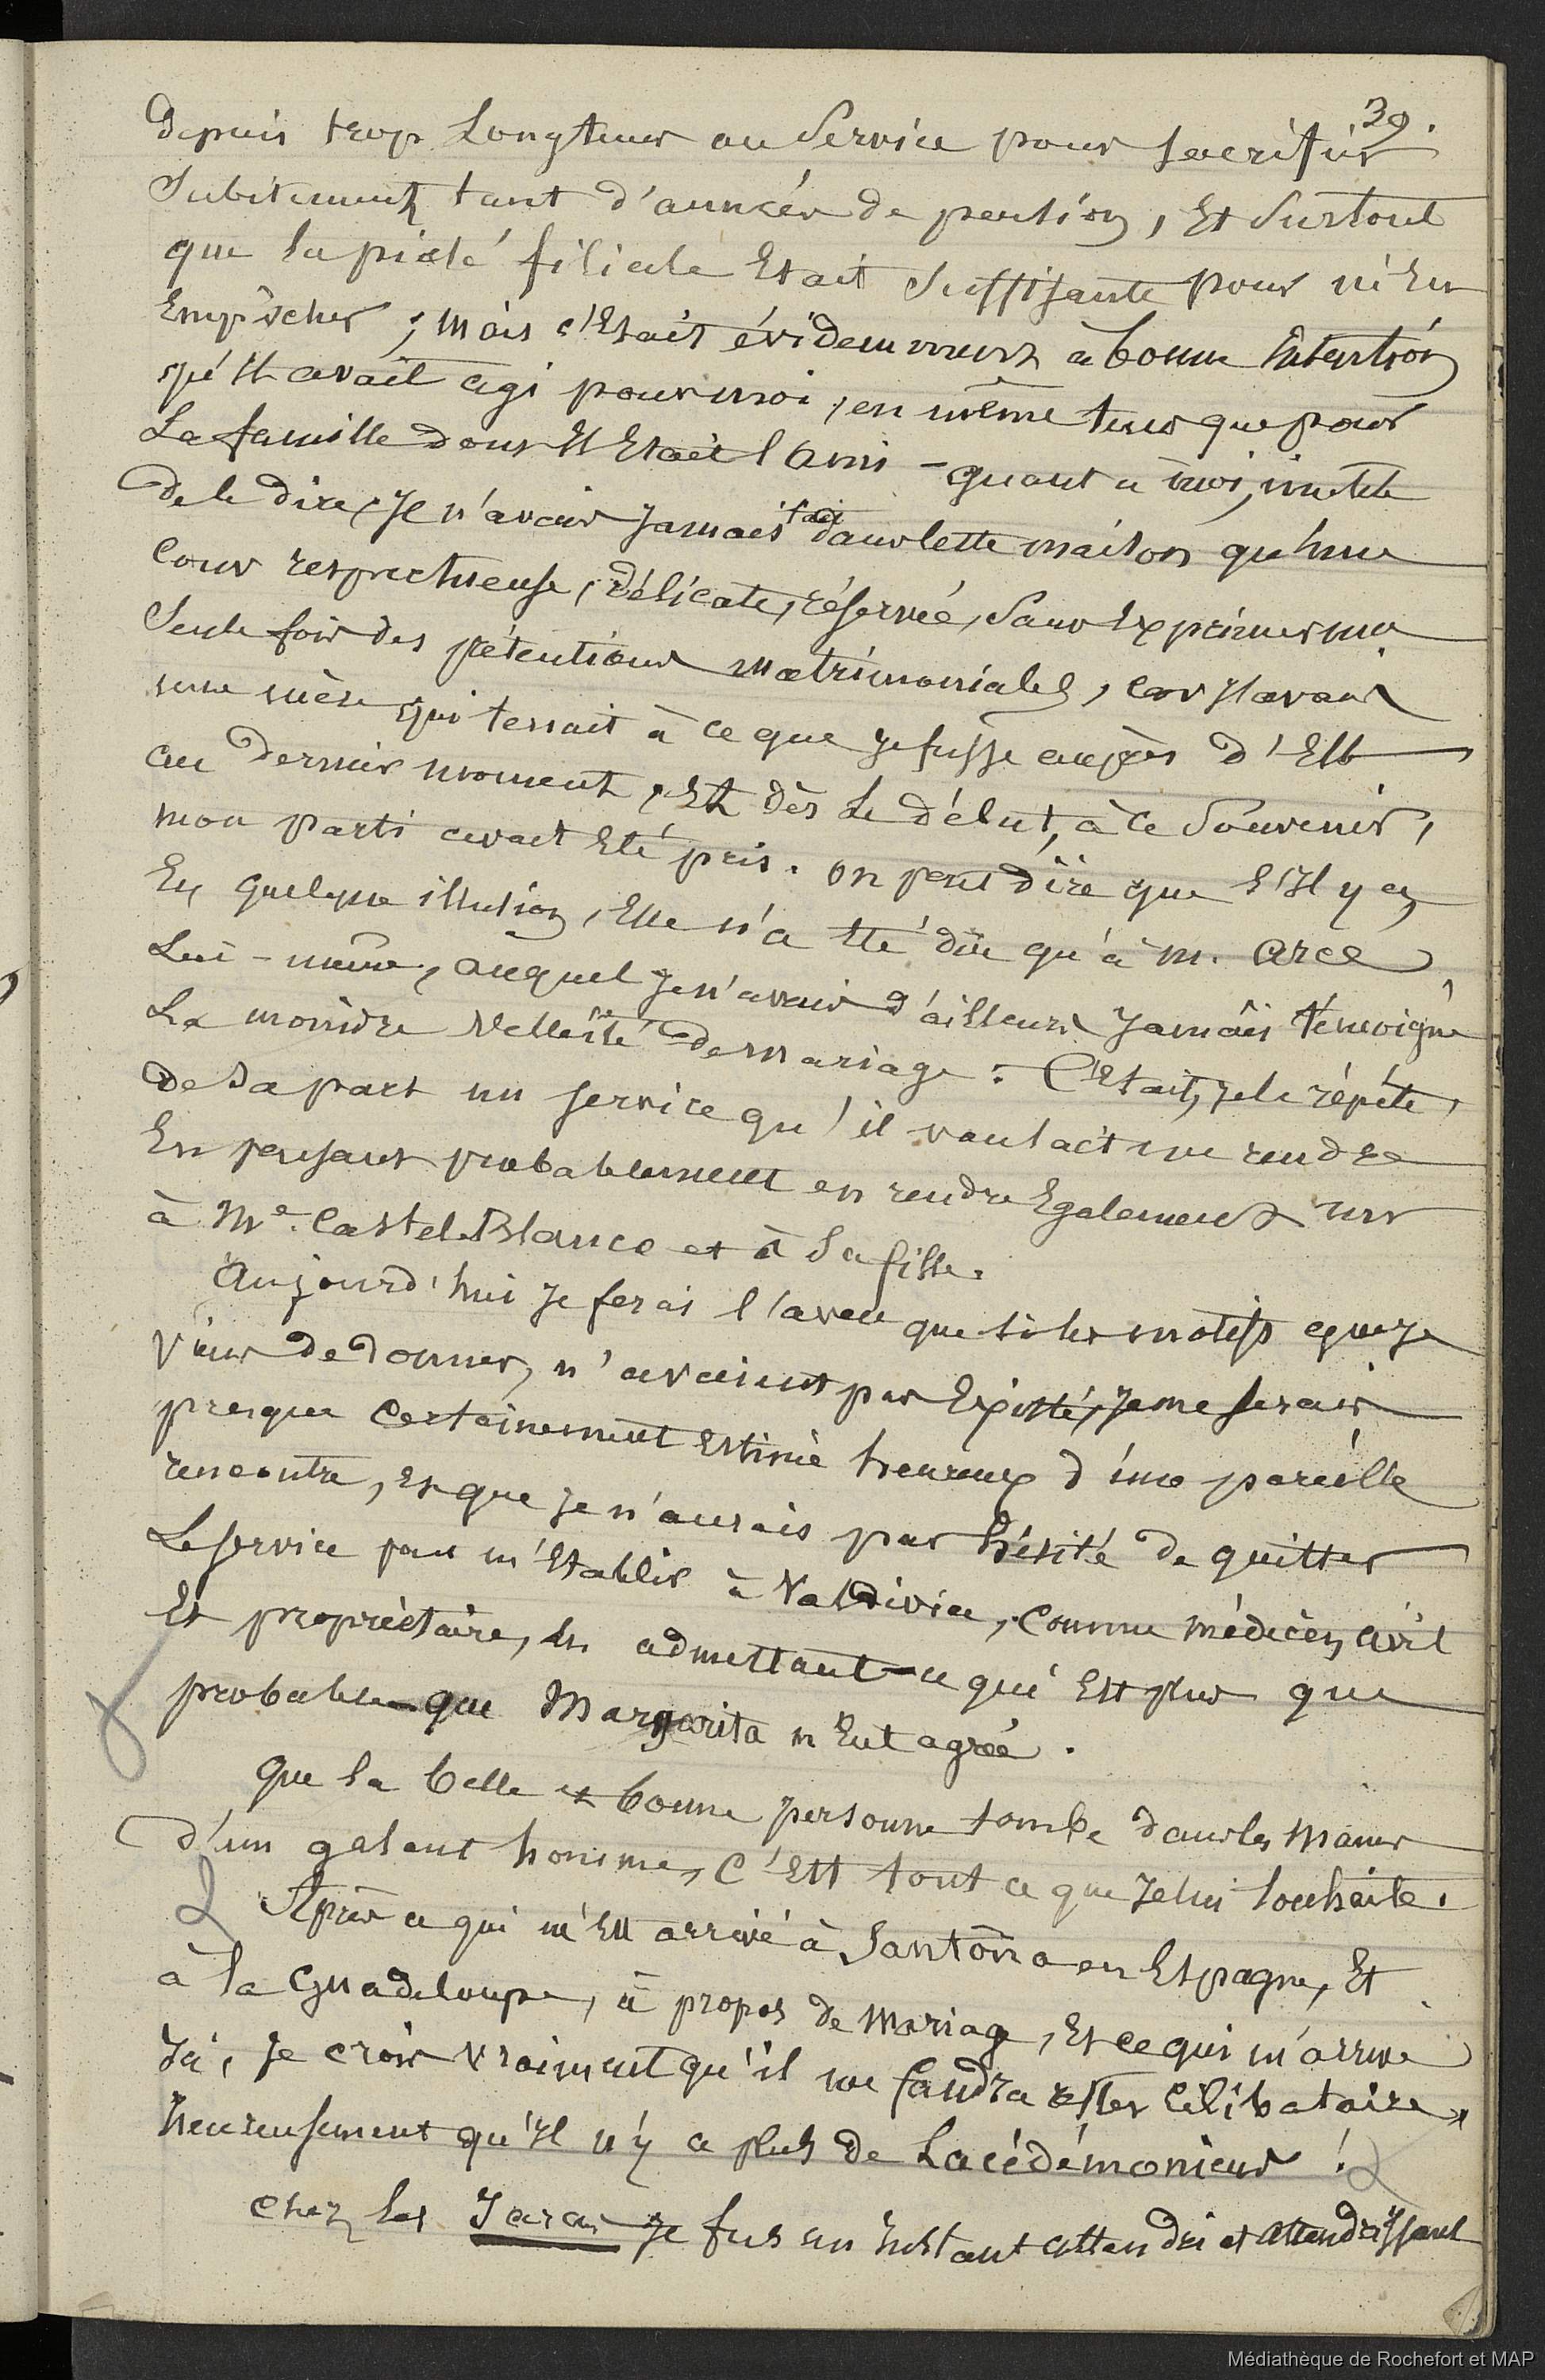 39.
Depuis trop Longtems au Service pour sacrifier
Subitement tant d'années de pention, Et Surtout
que la piété filiale Etait Suffisante pour m'En
Empêcher ; mais c'Etait évidemment à bonne intention
qu'Il avait agi pour moi, en même tems que pour
La famille dont Il Etait l'ami - quant à moi, inutile
de le dire, Je n'avais Jamais fait dans cette maison qu'une
Cour respectueuse, délicate, réservée, Sans Exprimer une
Seule fois des prétentions matrimoniales, car J'avais
une mère qui tenait à ce que Je fusse auprès d'Elle
au dernier moment, Et dès Le début, à ce Souvenir,
mon parti avait Eté pris. on peut dire que s'Il y a
Eu quelque illusion, Elle n'a Eté dûe qu'à M. Arce
Lui-même, auquel Je n'avais d'ailleurs Jamais témoigné
La moindre Velléité de mariage. C'Etait, Je le répète,
de Sa part un service qu'il voulait me rendre
En pensant probablement en rendre Egalement un
à Me. Castel-Blanco et à Sa fille.
Aujourd'hui Je ferai l'aveu que si les motifs que Je
viens de donner, n'avaient pas Existé, Je me serais
presque certainement Estimé heureux d'une pareille
rencontre, Et que Je n'aurais pas hésité de quitter
Le service pour m'Etablir à Valdivia, Comme médecin civil
Et propriétaire, En admettant - ce qui Est plus que
probable - que Margarita m'Eut agréé.
Que la belle et bonne personne tombe dans les mains
d'un galant homme, C'Est tout ce que Je lui Souhaite.
Après ce qui m'Est arrivé à Santoña en Espagne, Et
à la Guadeloupe, à propos de mariage, Et ce qui m'arrive
Ici, Je crois vraiment qu'il me faudra rester Célibataire,
heureusement qu'Il n'y a plus de Lacédémoniens !
Chez les Jaras Je fus un Instant attendri et attendrissant
Médiathèque de Rochefort et MAP